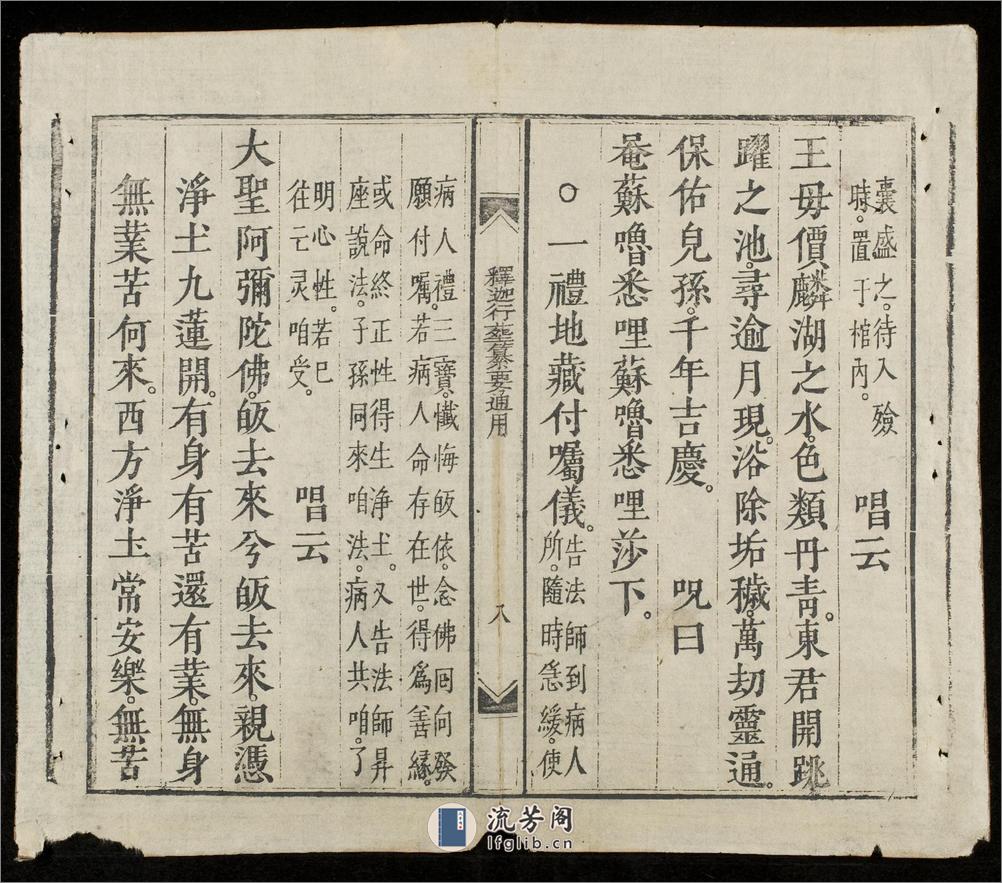 囊盛之。待入殮
時。置于棺內。
唱云
王母價麟湖之水。色類丹青。東君開跳
躍之池。尋逾月現。浴除垢穢。萬劫靈通。
保佑兒孫。千年吉慶。 呪曰
菴蘇嚕悉哩蘇嚕悉哩莎下。
○一禮地藏付囑儀。
告法師到病人
所。隨時急緩。使
釋迦行塟纂要通用
八
病人禮三寶。懺悔皈依。念佛回向發
願付囑。若病人命存在世。得爲善緣。
或命終正性得生淨土。又告法師昇
座說法。子孫同來咱法。病人共咱。了
明心性。若已
往亡灵咱受。
唱云
大聖阿彌陀佛。皈去來兮皈去來。親憑
淨土九蓮開。有身有苦還有業。無身
無業苦何來。西方淨土常安樂。無苦
流芳阁
lfglib.cn